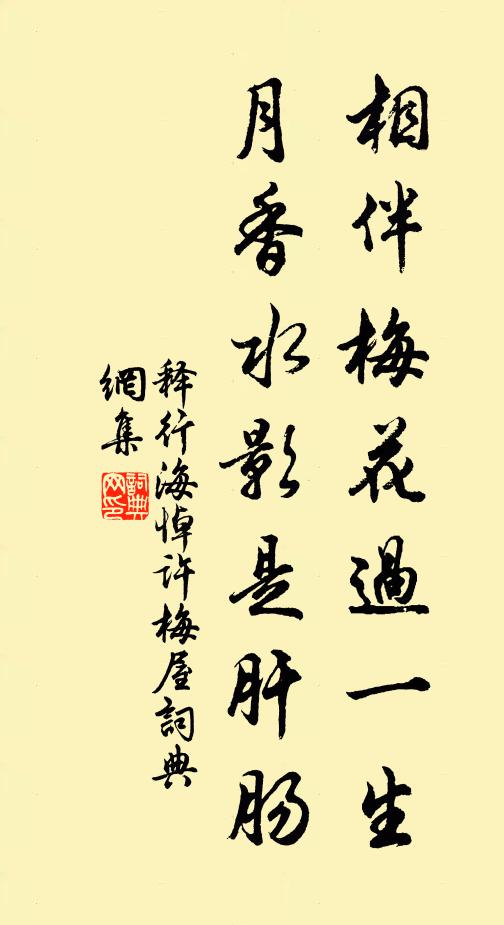 相伴梅花過一生
月香水影是肝肠
释行海悼许梅屋詞典
網集
詞典
网印